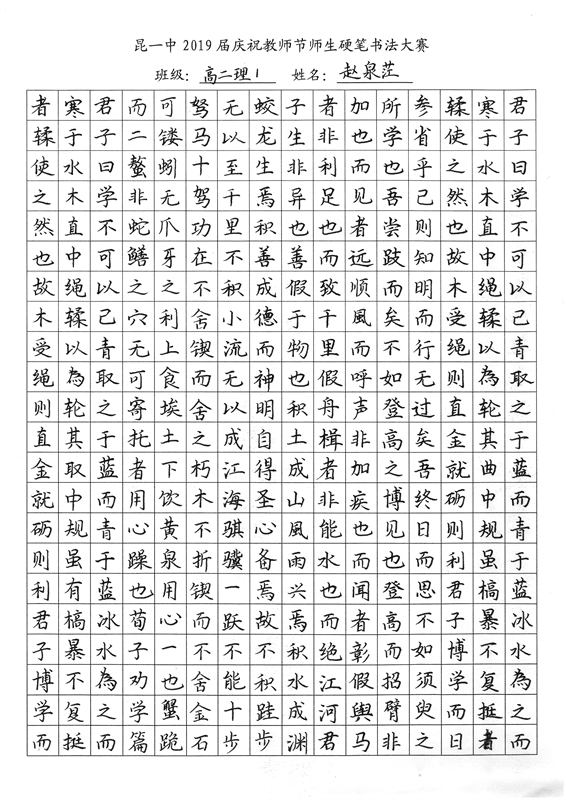 昆一中2019届庆祝教师节师生硬笔书法大赛
班级：高二理1 姓名：赵泉茳
君子曰学不可以已青取之于蓝而青于蓝冰水為之而
寒于水木直中绳輮以為轮其曲中规虽槁暴不复挺者
輮使之然也故木受绳则直金就砺则利君子博学而日
参省乎己则知明而行无过矣吾终日而思不如须臾之
所学也吾尝跂而矣不如登高之博见也登高而招臂非
加也而见者远顺風而呼声非加疾也而闻者彰假輿马
者非利足也而致千里假舟楫者非能水也而绝江河君
子生非异也善假于物也积土成山風雨兴焉积水成渊
蛟龙生焉积善成德而神明自得圣心备焉故不积跬步
无以至千里不积小流无以成江海骐骥一跃不能十步
驽马十驾功在不舍锲而舍之朽木不折锲而不舍金石
可镂蚓无爪牙之利上食埃土下饮黄泉用心一也蟹跪
而二螯非蛇鳝之穴无可寄托者用心躁也荀子劝学篇
君子曰学不可以已青取之于蓝而青于蓝冰水為之而
寒于水木直中绳輮以為轮其取中规虽有槁暴不复挺
者輮使之然也故木受绳则直金就砺则利君子博学而